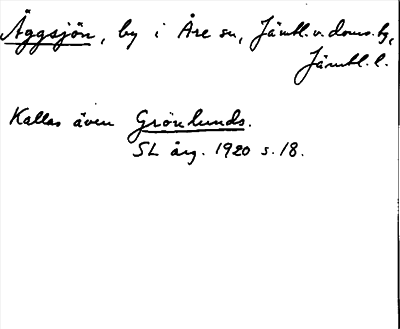 Äggsjön, by i Åre sn, Jämtl. v. doms. hg,
Jämtl. l.
Kallas även Grönlunds.
SL årg. 1920 s. 18.